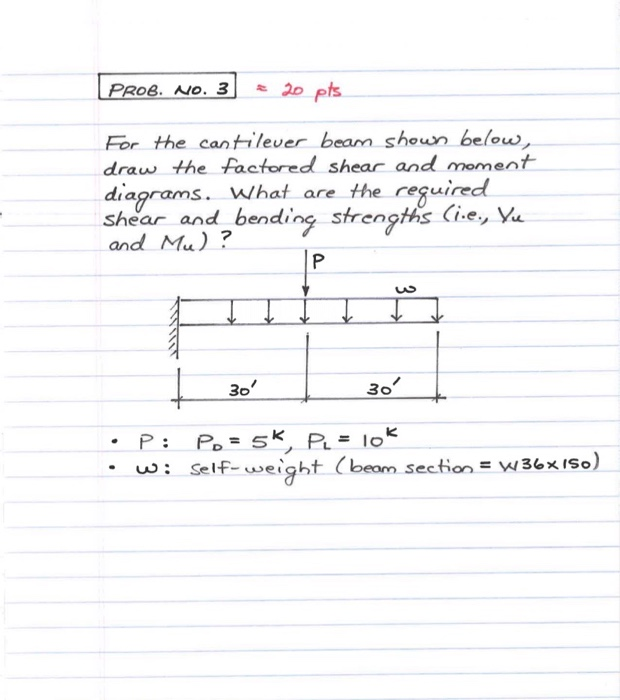 PROB. NO. 3 = 20 pts
For the cantilever beam shown below,
draw the factored shear and moment
diagrams. What are the required
shear and bending strengths (i.e., Vu
and Mu)?
P
w
30' 30'
• P: P_D = 5^K, P_L = 10^K
• w: self-weight (beam section = W36x150)